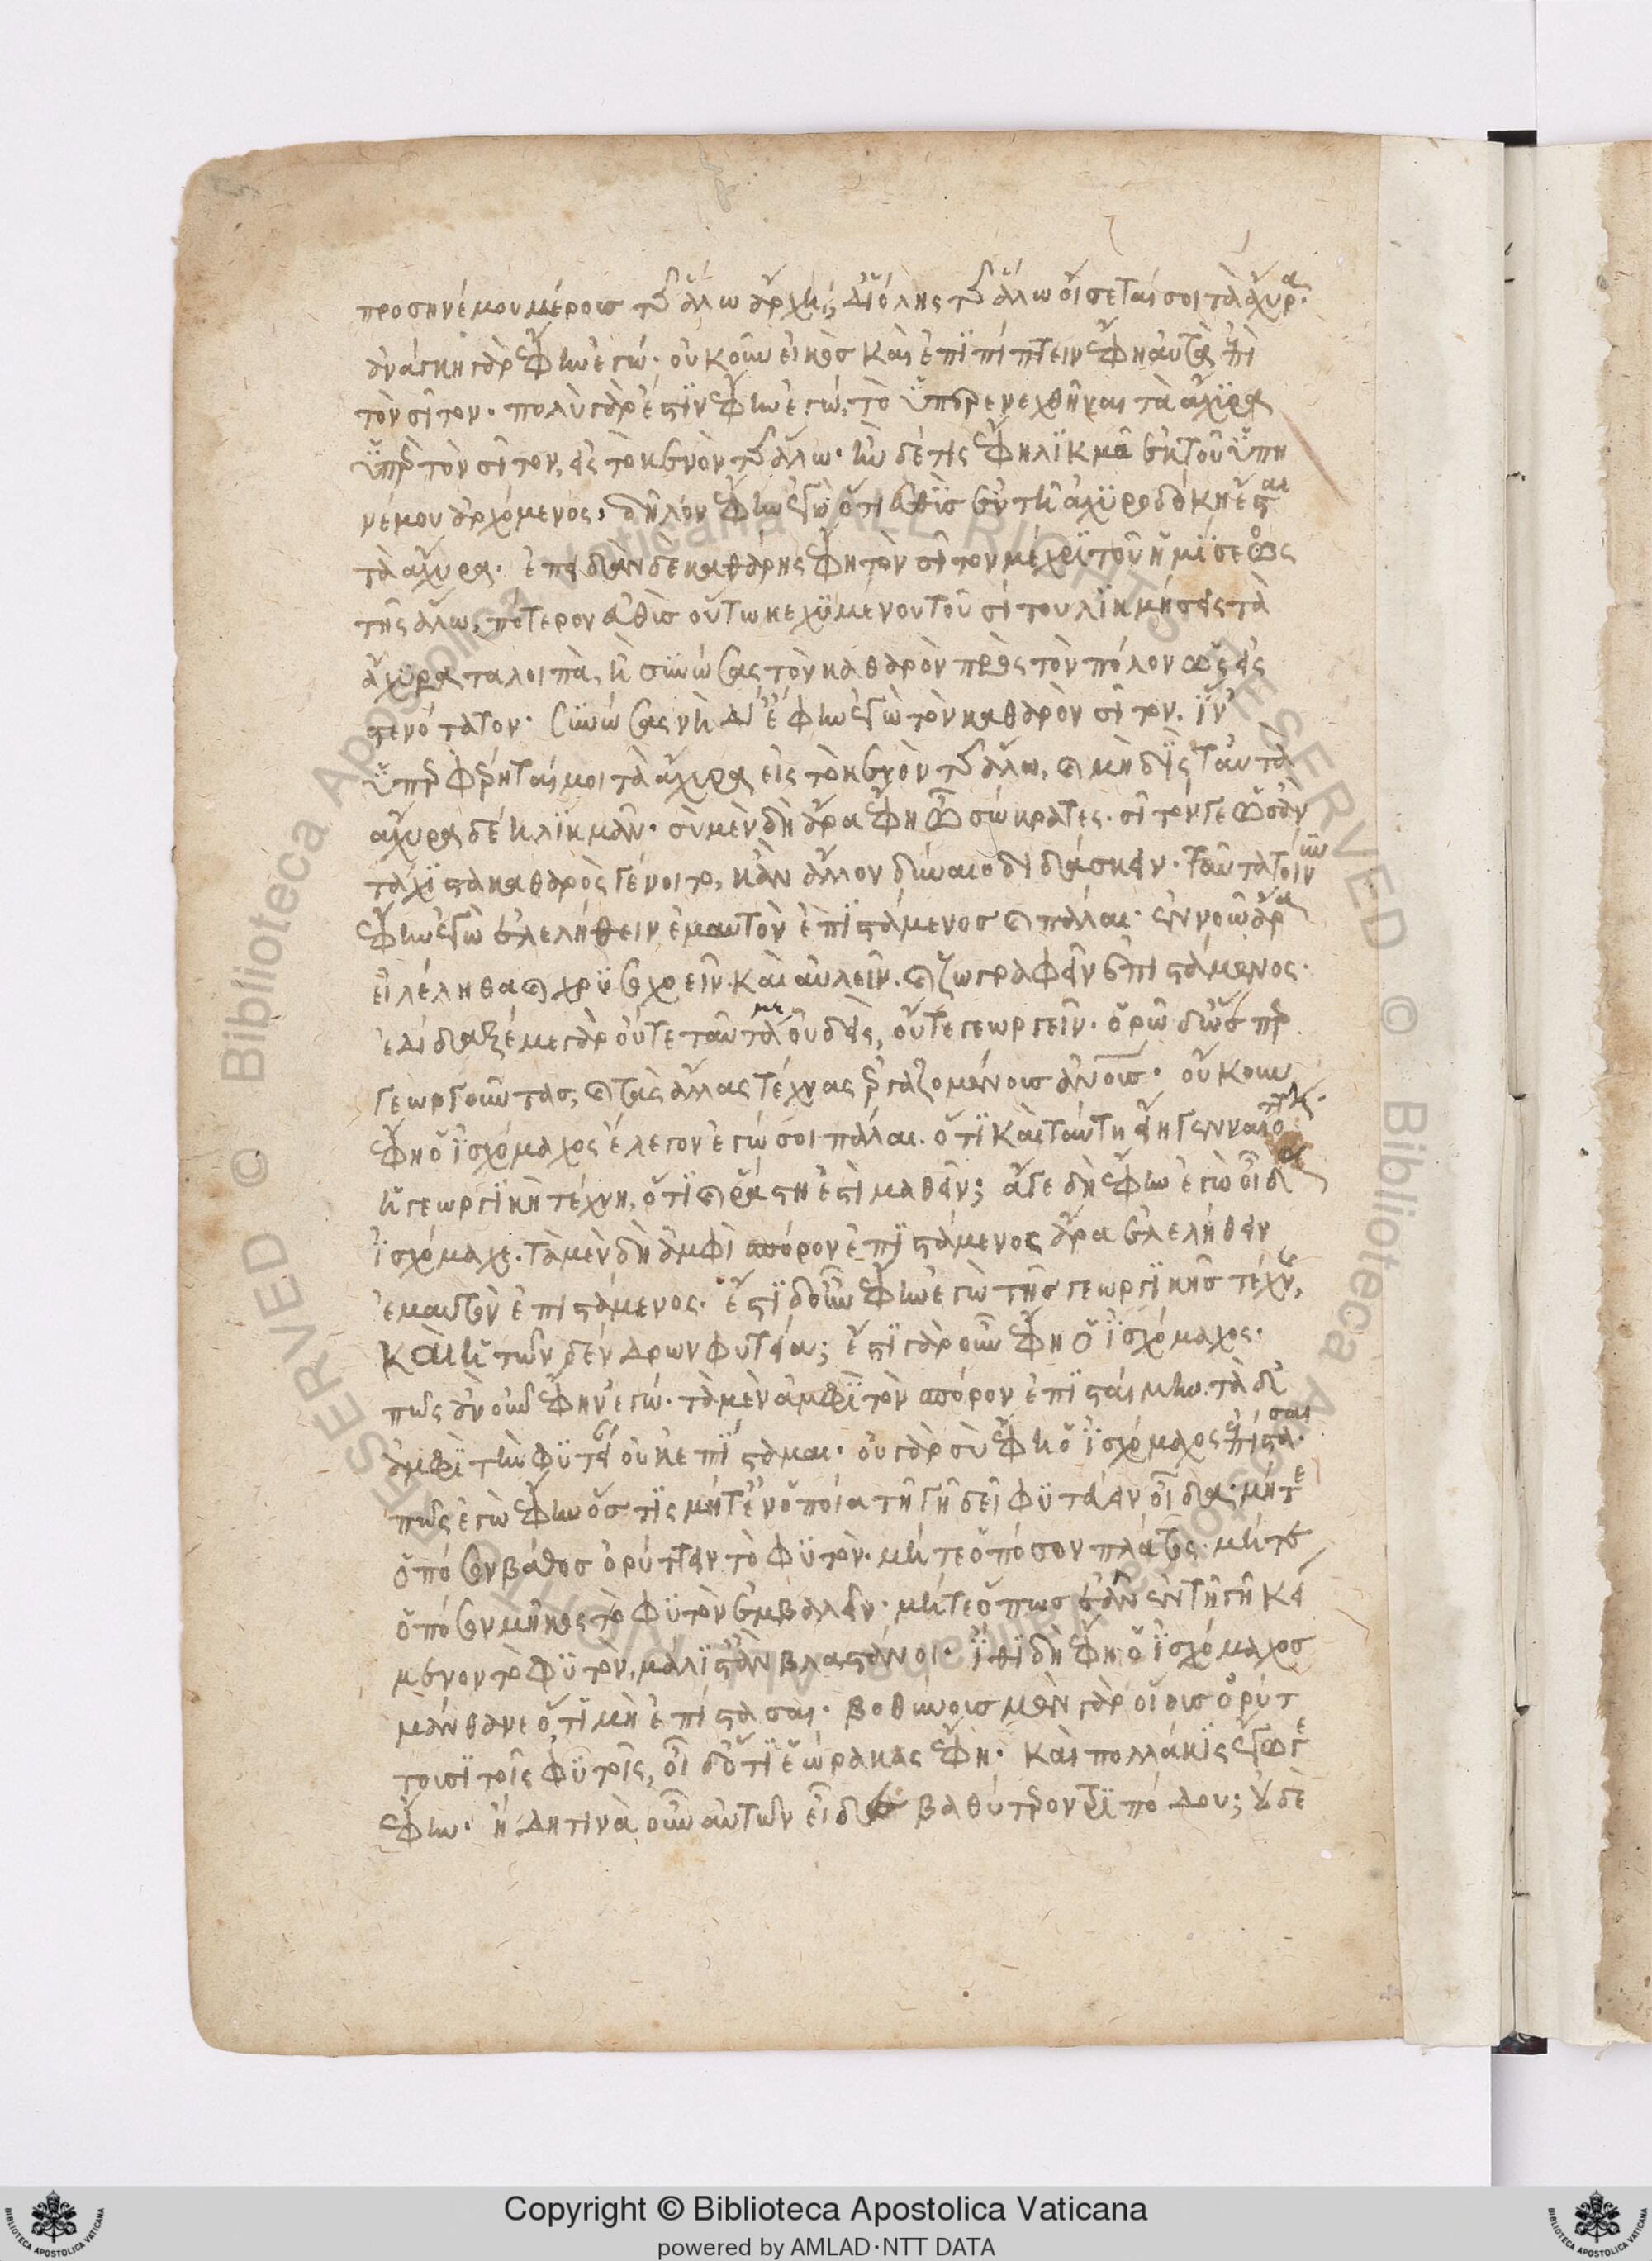 προσηνέμου μέρους τῆς ἅλω ἄρχη, δι' ὅλης τῆς ἅλω οἴσεταί σοι τὰ ἄχυρα·
ἀνάγκη γὰρ ἔφην ἐγώ· οὐκοῦν εἰκὸς καὶ ἐπιπίπτειν ἔφη αὐτὰ ἐπὶ
τὸν σῖτον· πολὺ γάρ ἐστιν ἔφην ἐγώ, τὸ ὑπερενεχθῆναι τὰ ἄχυρα
ὑπὲρ τὸν σῖτον, εἰς τὸ κενὸν τῆς ἅλω· ἢν δέ τις ἔφη λικμᾷ ἐκ τοῦ ὑπη
νέμου ἀρχόμενος, δῆλον ἔφην ἐγὼ ὅτι εὐθὺς ἐν τῇ ἀχυροδόκῃ ἔσται
τὰ ἄχυρα· ἐπειδὰν δὲ καθάρῃς ἔφη τὸν σῖτον μέχρι τοῦ ἡμίσεως
τῆς ἅλω, πότερον εὐθὺς οὕτω κεχυμένου τοῦ σίτου λικμήσεις τὰ
ἄχυρα τὰ λοιπὰ, ἢ συνώσας τὸν καθαρὸν πρὸς τὸν πόλον ὡς εἰς
στενότατον· συνώσας νὴ Δί' ἔφην ἐγὼ τὸν καθαρὸν σῖτον, ἵν'
ὑπερφέρηταί μοι τὰ ἄχυρα εἰς τὸ κενὸν τῆς ἅλω, καὶ μὴ δὶς ταὐτὰ
ἄχυρα δέῃ λικμᾶν· σὺ μὲν δὴ ἄρα ἔφη ὦ σώκρατες· σῖτόν γε ὡς ἂν
τάχιστα καθαρὸς γένοιτο, κἂν ἄλλον δύναιο διδάσκειν· ταῦτα τοίνυν
ἔφην ἐγὼ ἐλελήθειν ἐμαυτὸν ἐπιστάμενος καὶ πάλαι· ἐννοῶ ἄρα
εἰ λέληθα καὶ χρυσοχοεῖν· καὶ αὐλεῖν· καὶ ζωγραφεῖν ἐπιστάμενος·
ἐδίδαξέ με γὰρ οὔτε ταῦτά με οὐδεὶς, οὔτε γεωργεῖν· ὁρῶ δ' ὥσπερ
γεωργοῦντας, καὶ τὰς ἄλλας τέχνας ἐργαζομένους ἀνους· οὐκοῦν
ἔφη ὁ ἰσχόμαχος ἔλεγον ἐγώ σοι πάλαι· ὅτι καὶ ταύτῃ εἴη γενναιοτάτη
ἡ γεωργικὴ τέχνη, ὅτι καὶ ῥάστη ἐστὶ μαθεῖν; ἄγε δὴ ἔφην ἐγὼ οἶδα
ἰσχόμαχε· τὰ μὲν δὴ ἀμφὶ σπόρον ἐπιστάμενος ἄρα ἐλελήθειν
ἐμαυτὸν ἐπιστάμενος· ἔστιν οὖν ἔφην ἐγὼ τῆς γεωργικῆς τέχνης,
καὶ ἡ τῶν δένδρων φυτεία; ἔστι γὰρ οὖν ἔφη ὁ ἰσχόμαχος·
πῶς ἂν οὖν ἔφην ἐγώ· τὰ μὲν ἀμφὶ τὸν σπόρον ἐπισταίμην· τὰ δ'
ἀμφὶ τὴν φυτείαν οὐκ ἐπίσταμαι· οὐ γὰρ σὺ ἔφη ὁ ἰσχόμαχος ἐπίστασαι
πῶς ἐγὼ ἔφην ὅστις μήτ' ἐν ὁποίᾳ τῇ γῇ δεῖ φυτεύειν οἶδα· μήτε
ὁπόσον βάθος ὀρύττειν τὸ φυτόν· μήτε ὁπόσον πλάτος· μήτε
ὁπόσον μῆκος τὸ φυτὸν ἐμβαλεῖν· μήτε ὅπως ἂν ἐν τῇ γῇ κεί
μενον τὸ φυτὸν, μάλιστ' ἂν βλαστάνοι· ἴθι δὴ ἔφη ὁ ἰσχόμαχος
μάνθανε ὅ,τι μὴ ἐπίστασαι· βοθύνους μὲν γὰρ οἵους ὀρύτ
τουσι τοῖς φυτοῖς, οἶδ' ὅτι ἑώρακας ἔφη· καὶ πολλάκις ἔγωγε
ἔφην· ἤδη τινὰ οὖν αὐτῶν εἶδες βαθύτερον τριπόδου; οὐδὲ
Copyright © Biblioteca Apostolica Vaticana
powered by AMLAD·NTT DATA